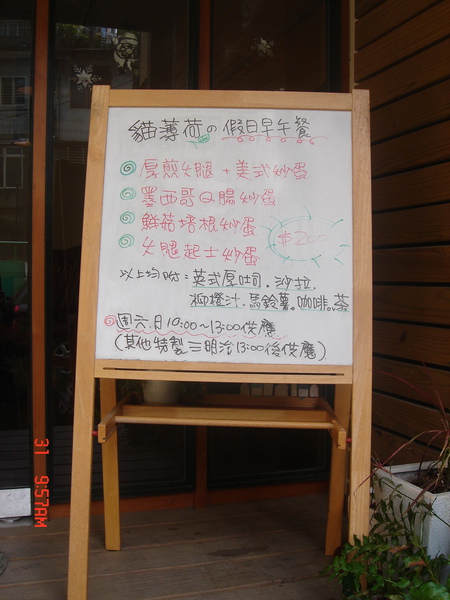 貓薄荷の假日早午餐
厚煎火腿+美式炒蛋
墨西哥Q腸炒蛋
鮮菇培根炒蛋
火腿起士炒蛋
以上均附:英式厚吐司.沙拉.
柳橙汁.馬鈴薯.咖啡.茶
週六.日10:00~13:00供應
(其他特製三明治13:00後供應)
31 9:57AM